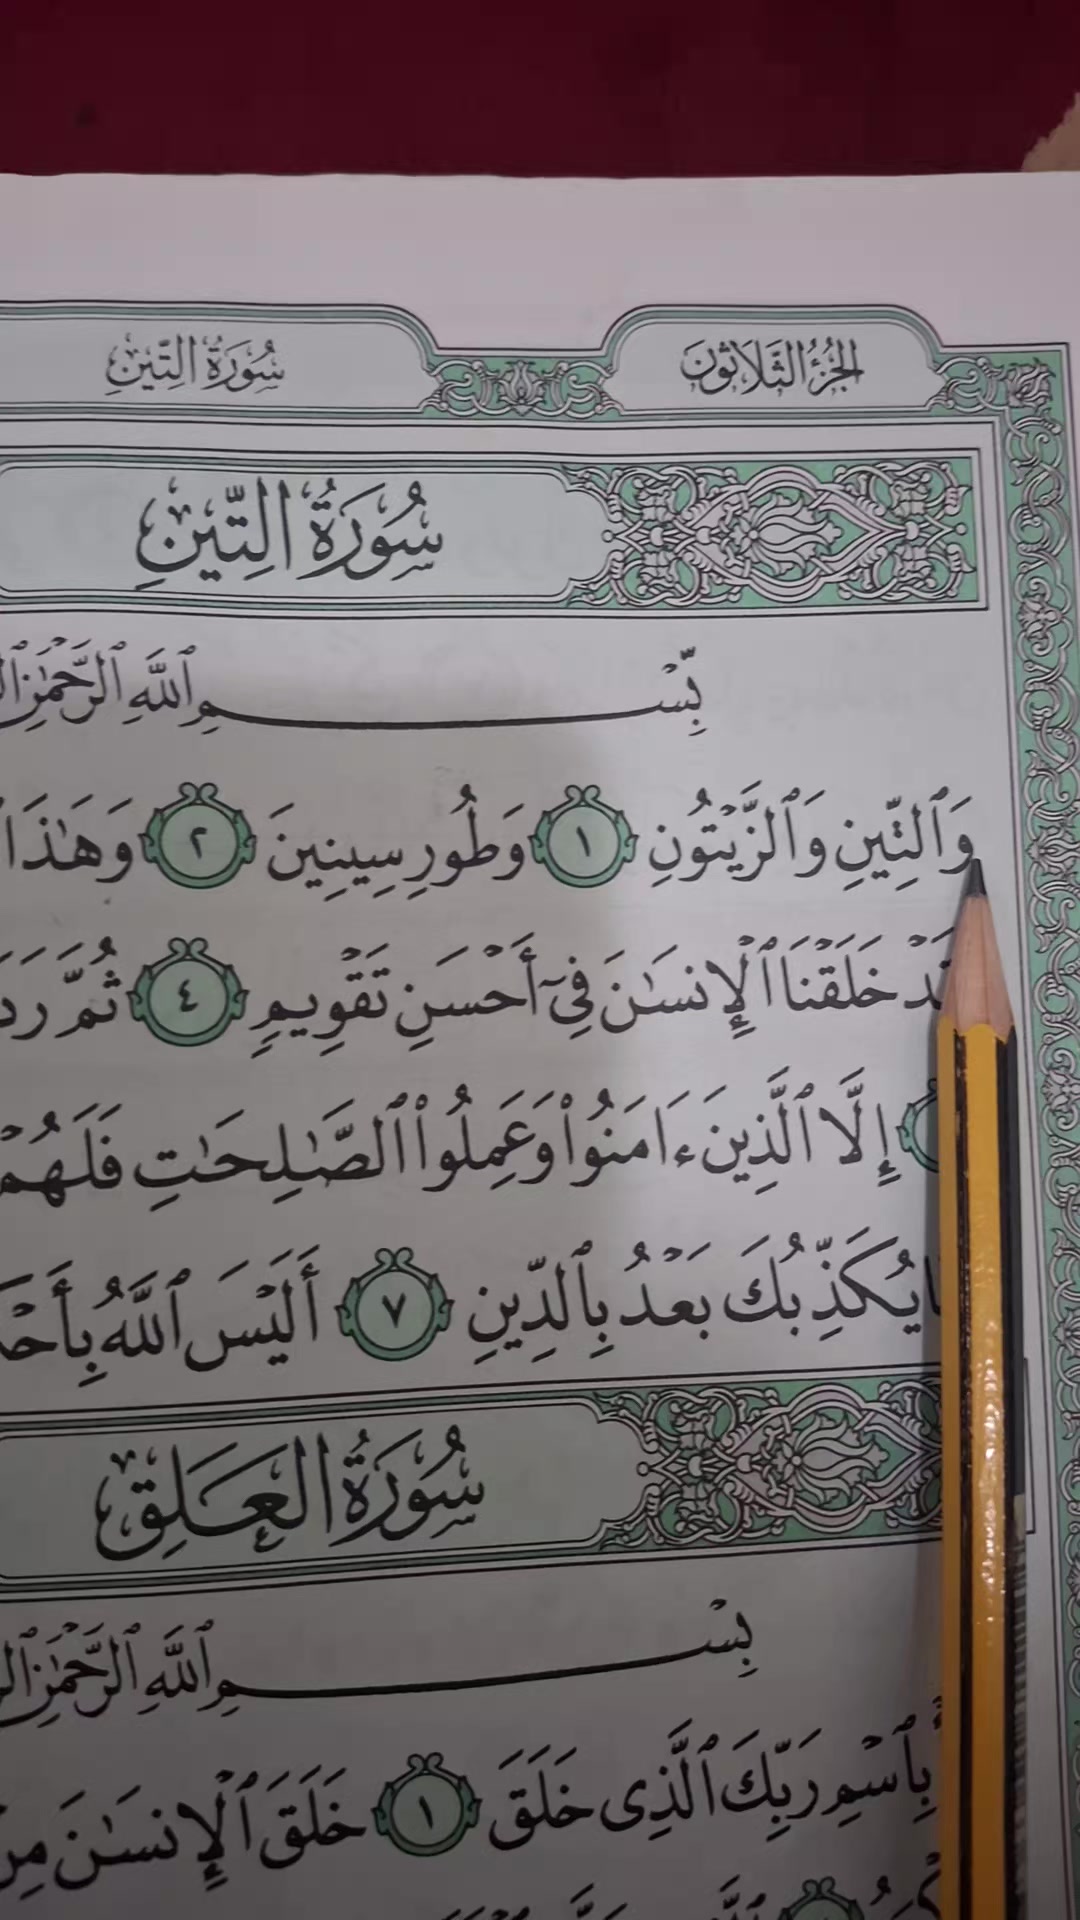 الجزء الثلاثون
سورة التين
سُورَةُ التِّينِ
بِّسْمِ ٱللَّهِ ٱلرَّحْمَٰنِ
وَٱلتِّينِ وَٱلزَّيْتُونِ ١ وَطُورِ سِينِينَ ٢ وَهَٰذَا
خَلَقْنَا ٱلْإِنسَٰنَ فِىٓ أَحْسَنِ تَقْوِيمٍ ٤ ثُمَّ
إِلَّا ٱلَّذِينَ ءَامَنُوا۟ وَعَمِلُوا۟ ٱلصَّٰلِحَٰتِ فَلَهُمْ
يُكَذِّبُكَ بَعْدُ بِٱلدِّينِ ٧ أَلَيْسَ ٱللَّهُ
سُورَةُ العَلَقِ
بِسْمِ ٱللَّهِ ٱلرَّحْمَٰنِ
بِٱسْمِ رَبِّكَ ٱلَّذِى خَلَقَ ١ خَلَقَ ٱلْإِنسَٰنَ مِنْ